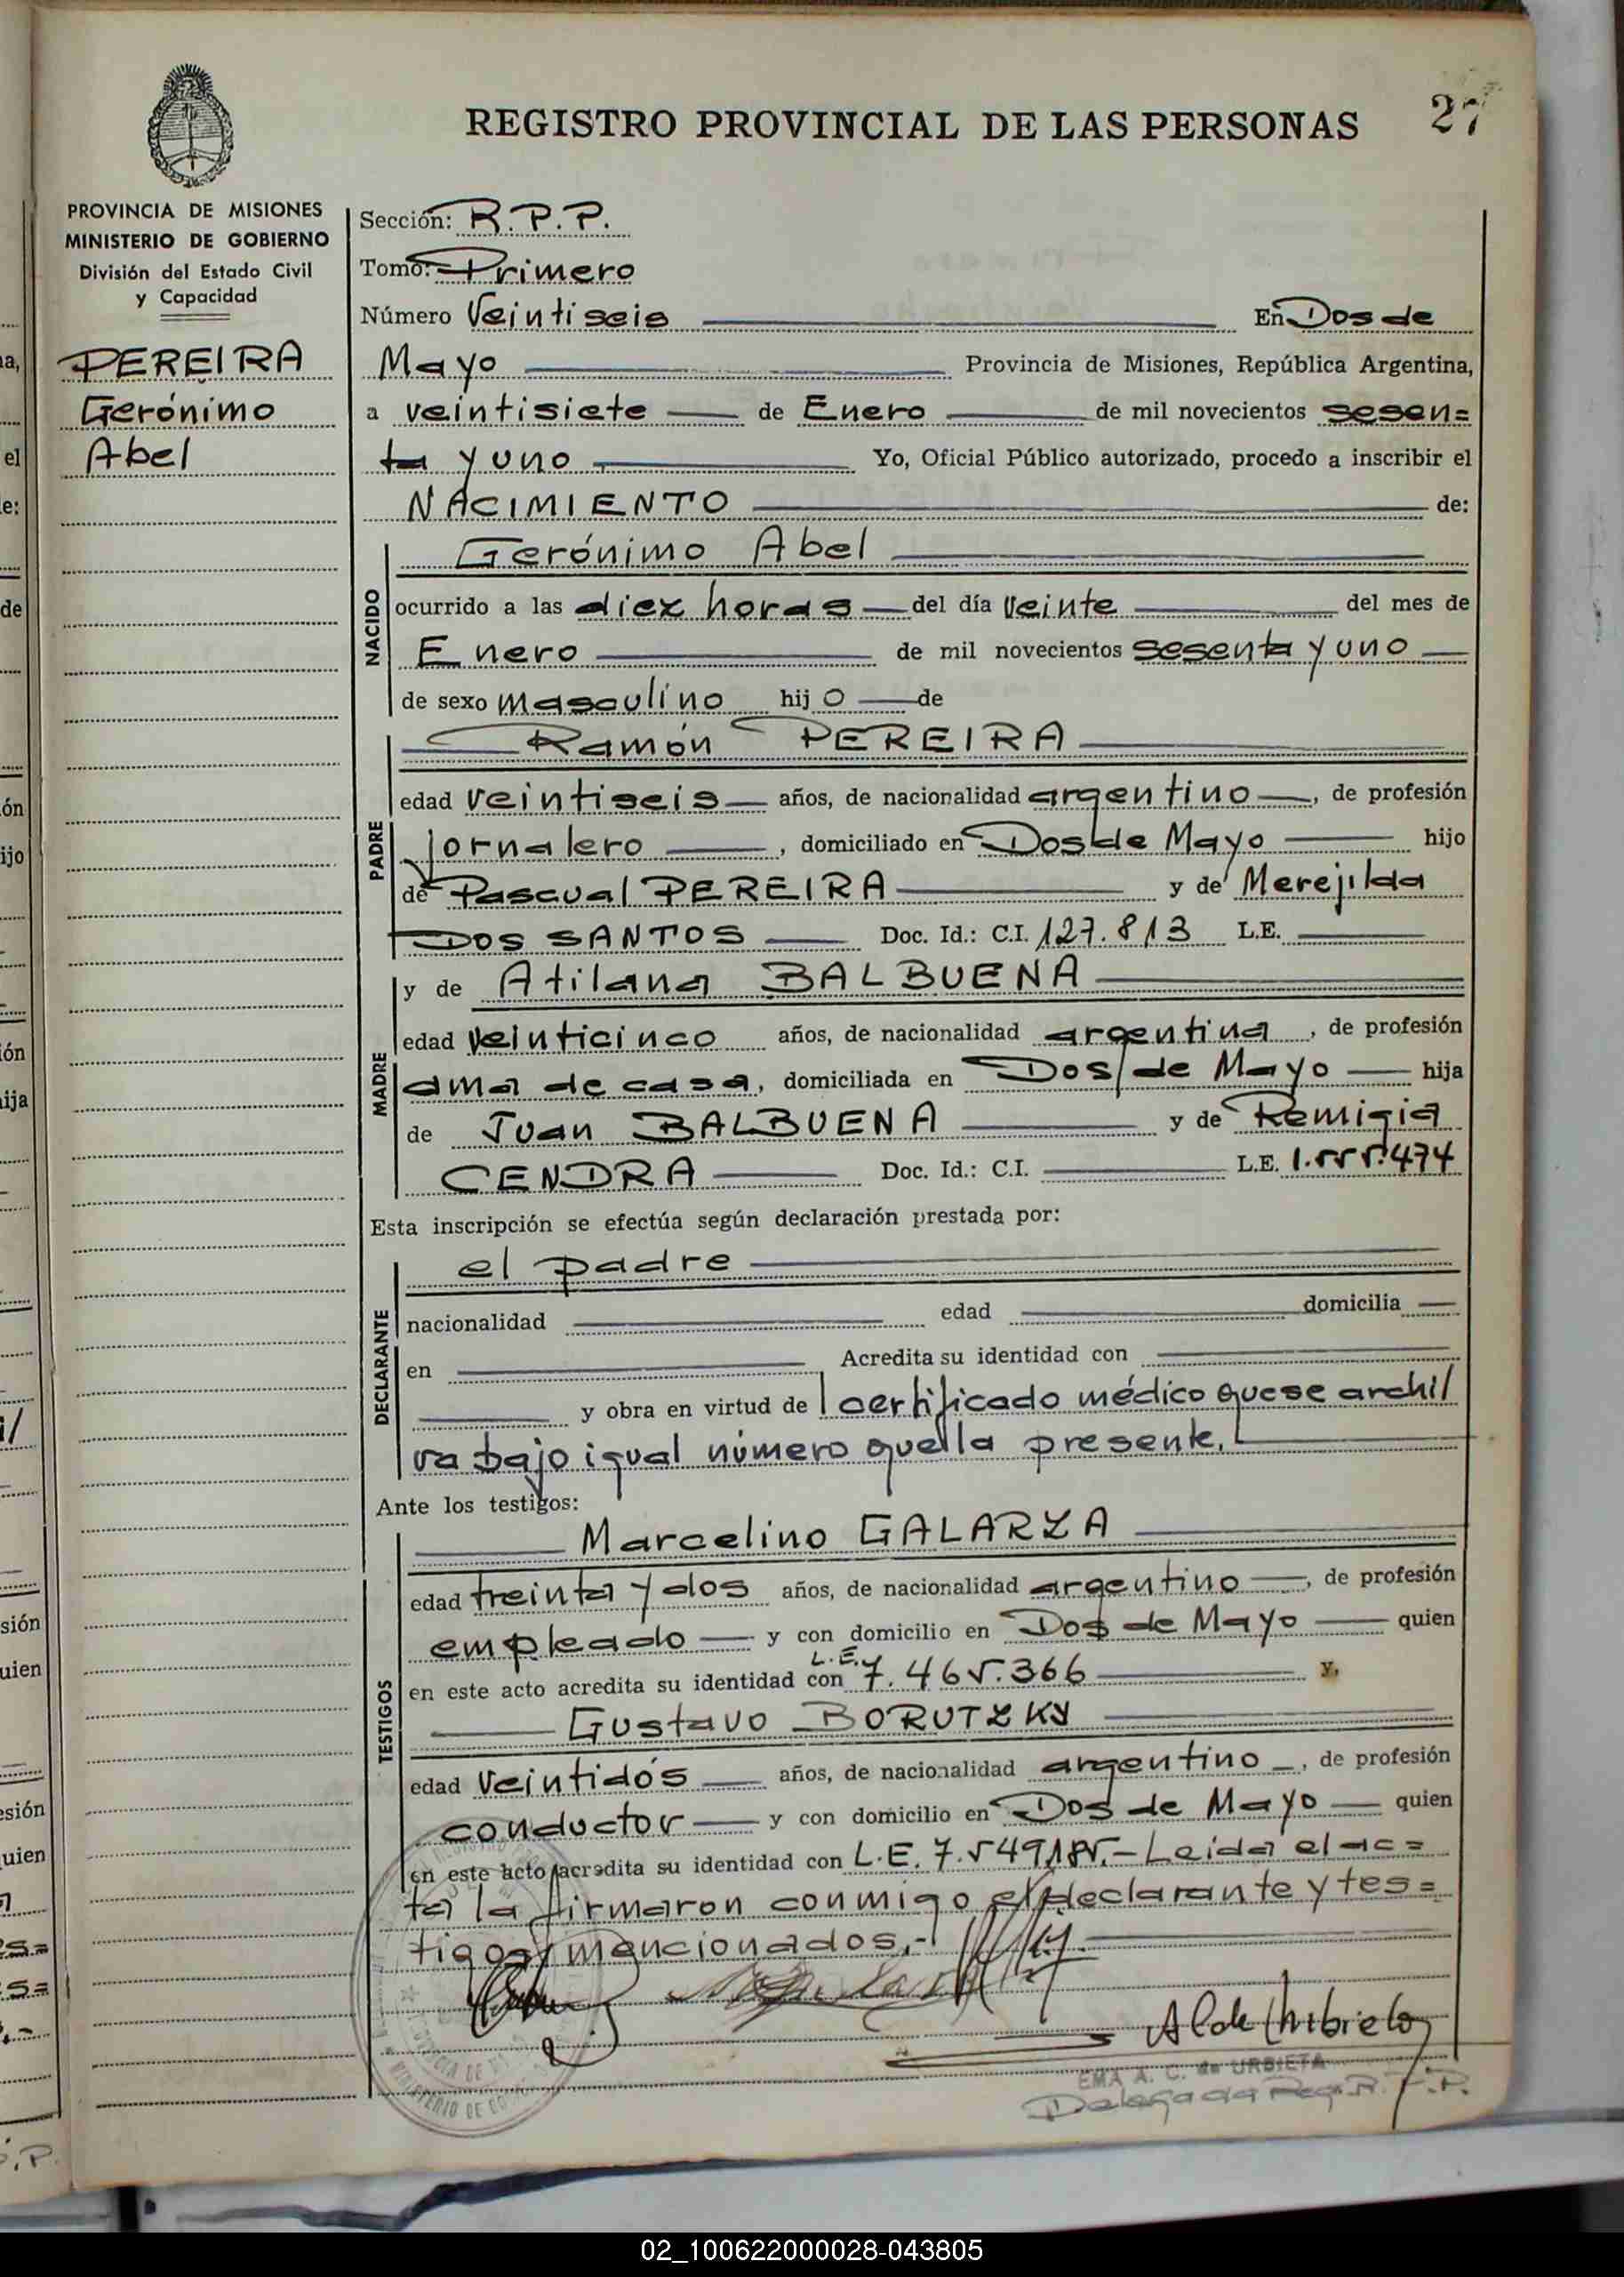 REGISTRO PROVINCIAL DE LAS PERSONAS
27
PROVINCIA DE MISIONES
MINISTERIO DE GOBIERNO
División del Estado Civil
y Capacidad
PEREIRA
Gerónimo
Abel
Sección: R.P.P.
Tomo: Primero
Número Veintiseis En Dos de
Mayo Provincia de Misiones, República Argentina,
a veintisiete de Enero de mil novecientos sesen=
ta y uno Yo, Oficial Público autorizado, procedo a inscribir el
NACIMIENTO de:
NACIDO
Gerónimo Abel
ocurrido a las diez horas del día veinte del mes de
Enero de mil novecientos sesenta y uno
de sexo masculino hijo de
PADRE
Ramón PEREIRA
edad veintiseis años, de nacionalidad argentino, de profesión
jornalero, domiciliado en Dos de Mayo hijo
de Pascual PEREIRA y de Merejilda
DOS SANTOS Doc. Id.: C.I. 127.813 L.E.
MADRE
y de Atilana BALBUENA
edad veinticinco años, de nacionalidad argentina, de profesión
ama de casa, domiciliada en Dos de Mayo hija
de Juan BALBUENA y de Remigia
CENDRA Doc. Id.: C.I. L.E. 1.555.474
Esta inscripción se efectúa según declaración prestada por:
DECLARANTE
el padre
nacionalidad edad domicilia
en Acredita su identidad con
y obra en virtud de l certificado médico que se archi/
va bajo igual número que la presente.
Ante los testigos:
TESTIGOS
Marcelino GALARZA
edad treinta y dos años, de nacionalidad argentino, de profesión
empleado y con domicilio en Dos de Mayo quien
en este acto acredita su identidad con L.E. 7.465.366 y,
Gustavo BORUTZKY
edad Veintidós años, de nacionalidad argentino, de profesión
conductor y con domicilio en Dos de Mayo quien
en este acto acredita su identidad con L.E. 7.549.185.- Leida el ac=
ta la firmaron conmigo el declarante y tes=
tigos mencionados.-
EMA A. C. de URBIETA
Delegada Reg. R.P.P.
02_100622000028-043805